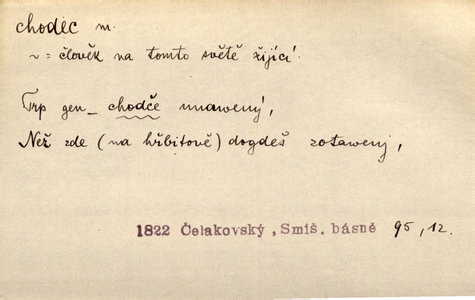 chodec m.
~ = člověk na tomto světě žijící.
Trp gen_ chodče unawený,
Než zde (na hřbitově) dogdeš zotawený,
1822 Čelakovský, Smíš. básně 95, 12.